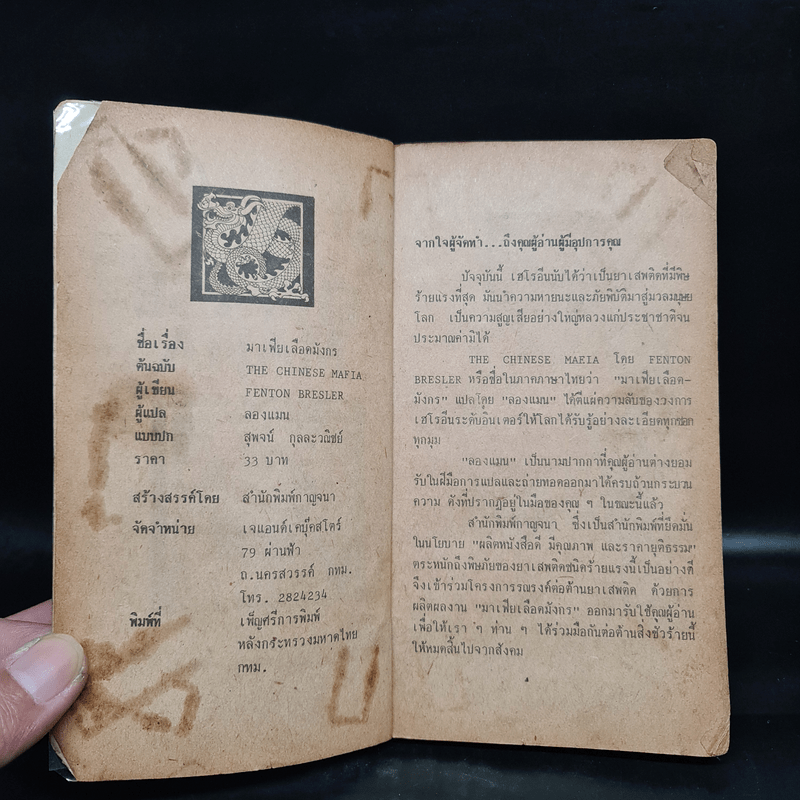 ชื่อเรื่อง มาเฟียเลือดมังกร
ต้นฉบับ THE CHINESE MAFIA
ผู้เขียน FENTON BRESLER
ผู้แปล ลองแมน
แบบปก สุพจน์ กุลละวณิชย์
ราคา 33 บาท
สร้างสรรค์โดย สำนักพิมพ์กาญจนา
จัดจำหน่าย เจแอนด์เคบุ๊คสโตร์
79 ผ่านฟ้า
ถ.นครสวรรค์ กทม.
โทร. 2824234
พิมพ์ที่ เพ็ญศรีการพิมพ์
หลังกระทรวงมหาดไทย
กทม.
จากใจผู้จัดทำ...ถึงคุณผู้อ่านผู้มีอุปการคุณ
ปัจจุบันนี้ เฮโรอีนนับได้ว่าเป็นยาเสพติดที่มีพิษ
ร้ายแรงที่สุด มันนำความหายนะและภัยพิบัติมาสู่มวลมนุษย
โลก เป็นความสูญเสียอย่างใหญ่หลวงแก่ประชาชาติจน
ประมาณค่ามิได้
THE CHINESE MAFIA โดย FENTON
BRESLER หรือชื่อในภาคภาษาไทยว่า "มาเฟียเลือด-
มังกร" แปลโดย "ลองแมน" ได้ตีแผ่ความลับของวงการ
เฮโรอีนระดับอินเตอร์ให้โลกได้รับรู้อย่างละเอียดทุกซอก
ทุกมุม
"ลองแมน" เป็นนามปากกาที่คุณผู้อ่านต่างยอม
รับในฝีมือการแปลและถ่ายทอดออกมาได้ครบถ้วนกระบวน
ความ ดังที่ปรากฏอยู่ในมือของคุณ ๆ ในขณะนี้แล้ว
สำนักพิมพ์กาญจนา ซึ่งเป็นสำนักพิมพ์ที่ยึดมั่น
ในนโยบาย "ผลิตหนังสือดี มีคุณภาพ และราคายุติธรรม"
ตระหนักถึงพิษภัยของยาเสพติดชนิดร้ายแรงนี้เป็นอย่างดี
จึงเข้าร่วมโครงการรณรงค์ต่อต้านยาเสพติด ด้วยการ
ผลิตผลงาน "มาเฟียเลือดมังกร" ออกมารับใช้คุณผู้อ่าน
เพื่อให้เรา ๆ ท่าน ๆ ได้ร่วมมือกันต่อต้านสิ่งชั่วร้ายนี้
ให้หมดสิ้นไปจากสังคม